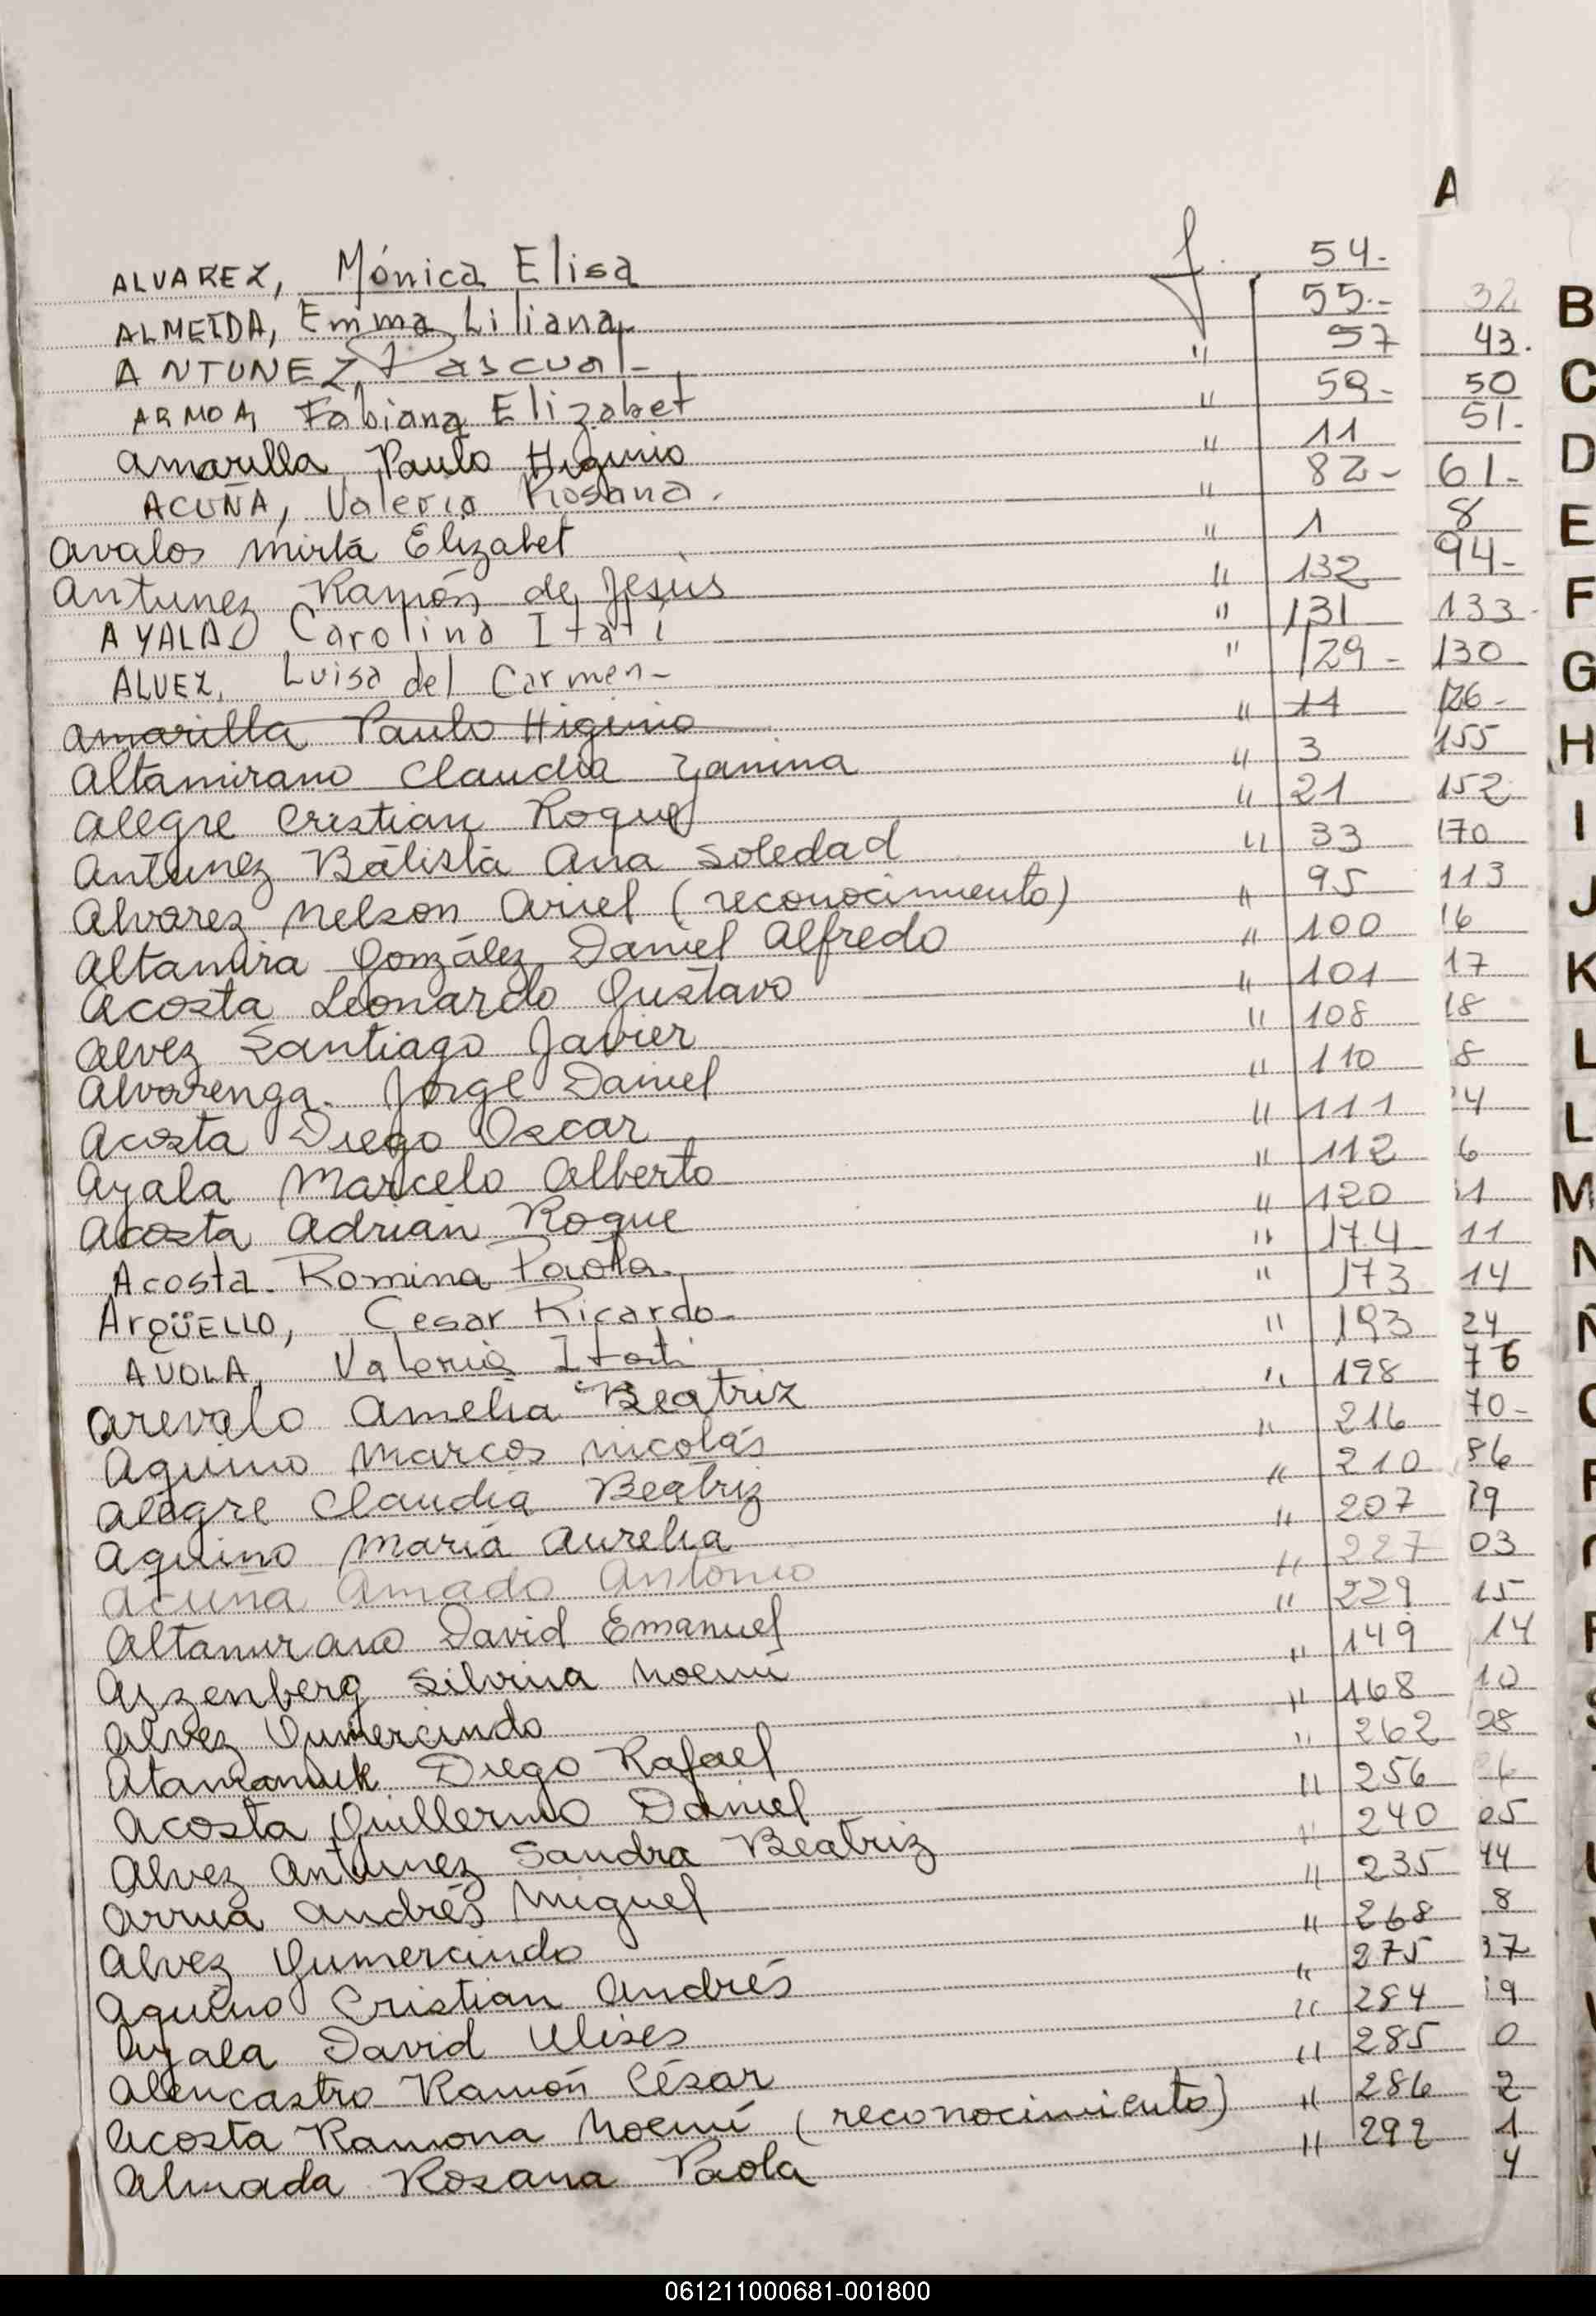 A
ALVAREZ, Mónica Elisa f. 54-
ALMEIDA, Emma Liliana 55.- 32
ANTUNEZ, Pascual- " 57 43.
ARMOA, Fabiana Elizabet " 59- 50
Amarilla Paulo Higinio " 11 51.
ACUÑA, Valeria Rosana. " 82- 61-
Avalos Mirta Elizabet " 1 8
Antunez Ramón de Jesús " 132 94-
AYALA, Carolina Itatí " 131 133-
ALVEZ, Luisa del Carmen- " 129- 130
Amarilla Paulo Higinio " 11 126-
Altamirano Claudia Yanina " 3 155
Alegre Cristian Roque " 21 152
Antunez Batista Ana Soledad " 33 170
Alvarez Nelson Ariel (reconocimiento) " 95 113
Altamira González Daniel Alfredo " 100 16
Acosta Leonardo Gustavo " 101 17
Alvez Santiago Javier " 108 18
Alvarenga Jorge Daniel " 110 8
Acosta Diego Oscar " 111 4
Ayala Marcelo Alberto " 112 6
Acosta Adrián Roque " 120 1
Acosta Romina Paola. " 174 11
ArgüELLO, Cesar Ricardo- " 173 14
AVOLA, Valeria Itati " 193 24
Arevalo Amelia Beatriz " 198 76
Aquino Marcos Nicolás " 216 70-
Alegre Claudia Beatriz " 210 86
Aquino María Aurelia " 207 19
Acuña Amado Antonio " 227 03
Altamirano David Emanuel " 229 15
Ayzenberg Silvina Noemí " 149 14
Alvez Gumercindo " 168 10
Atamanuk Diego Rafael " 262 28
Acosta Guillermo Daniel " 256
Alvez Antunez Sandra Beatriz " 240 05
Arrua Andrés Miguel " 235 44
Alvez Gumercindo " 268 8
Aquino Cristian Andrés " 275 37
Ayala David Ulises " 284 9
Alencastro Ramón César " 285 0
Acosta Ramona Noemí (reconocimiento) " 286 2
Almada Rosana Paola " 292 1
4
B
C
D
E
F
G
H
I
J
K
L
L
M
N
061211000681-001800